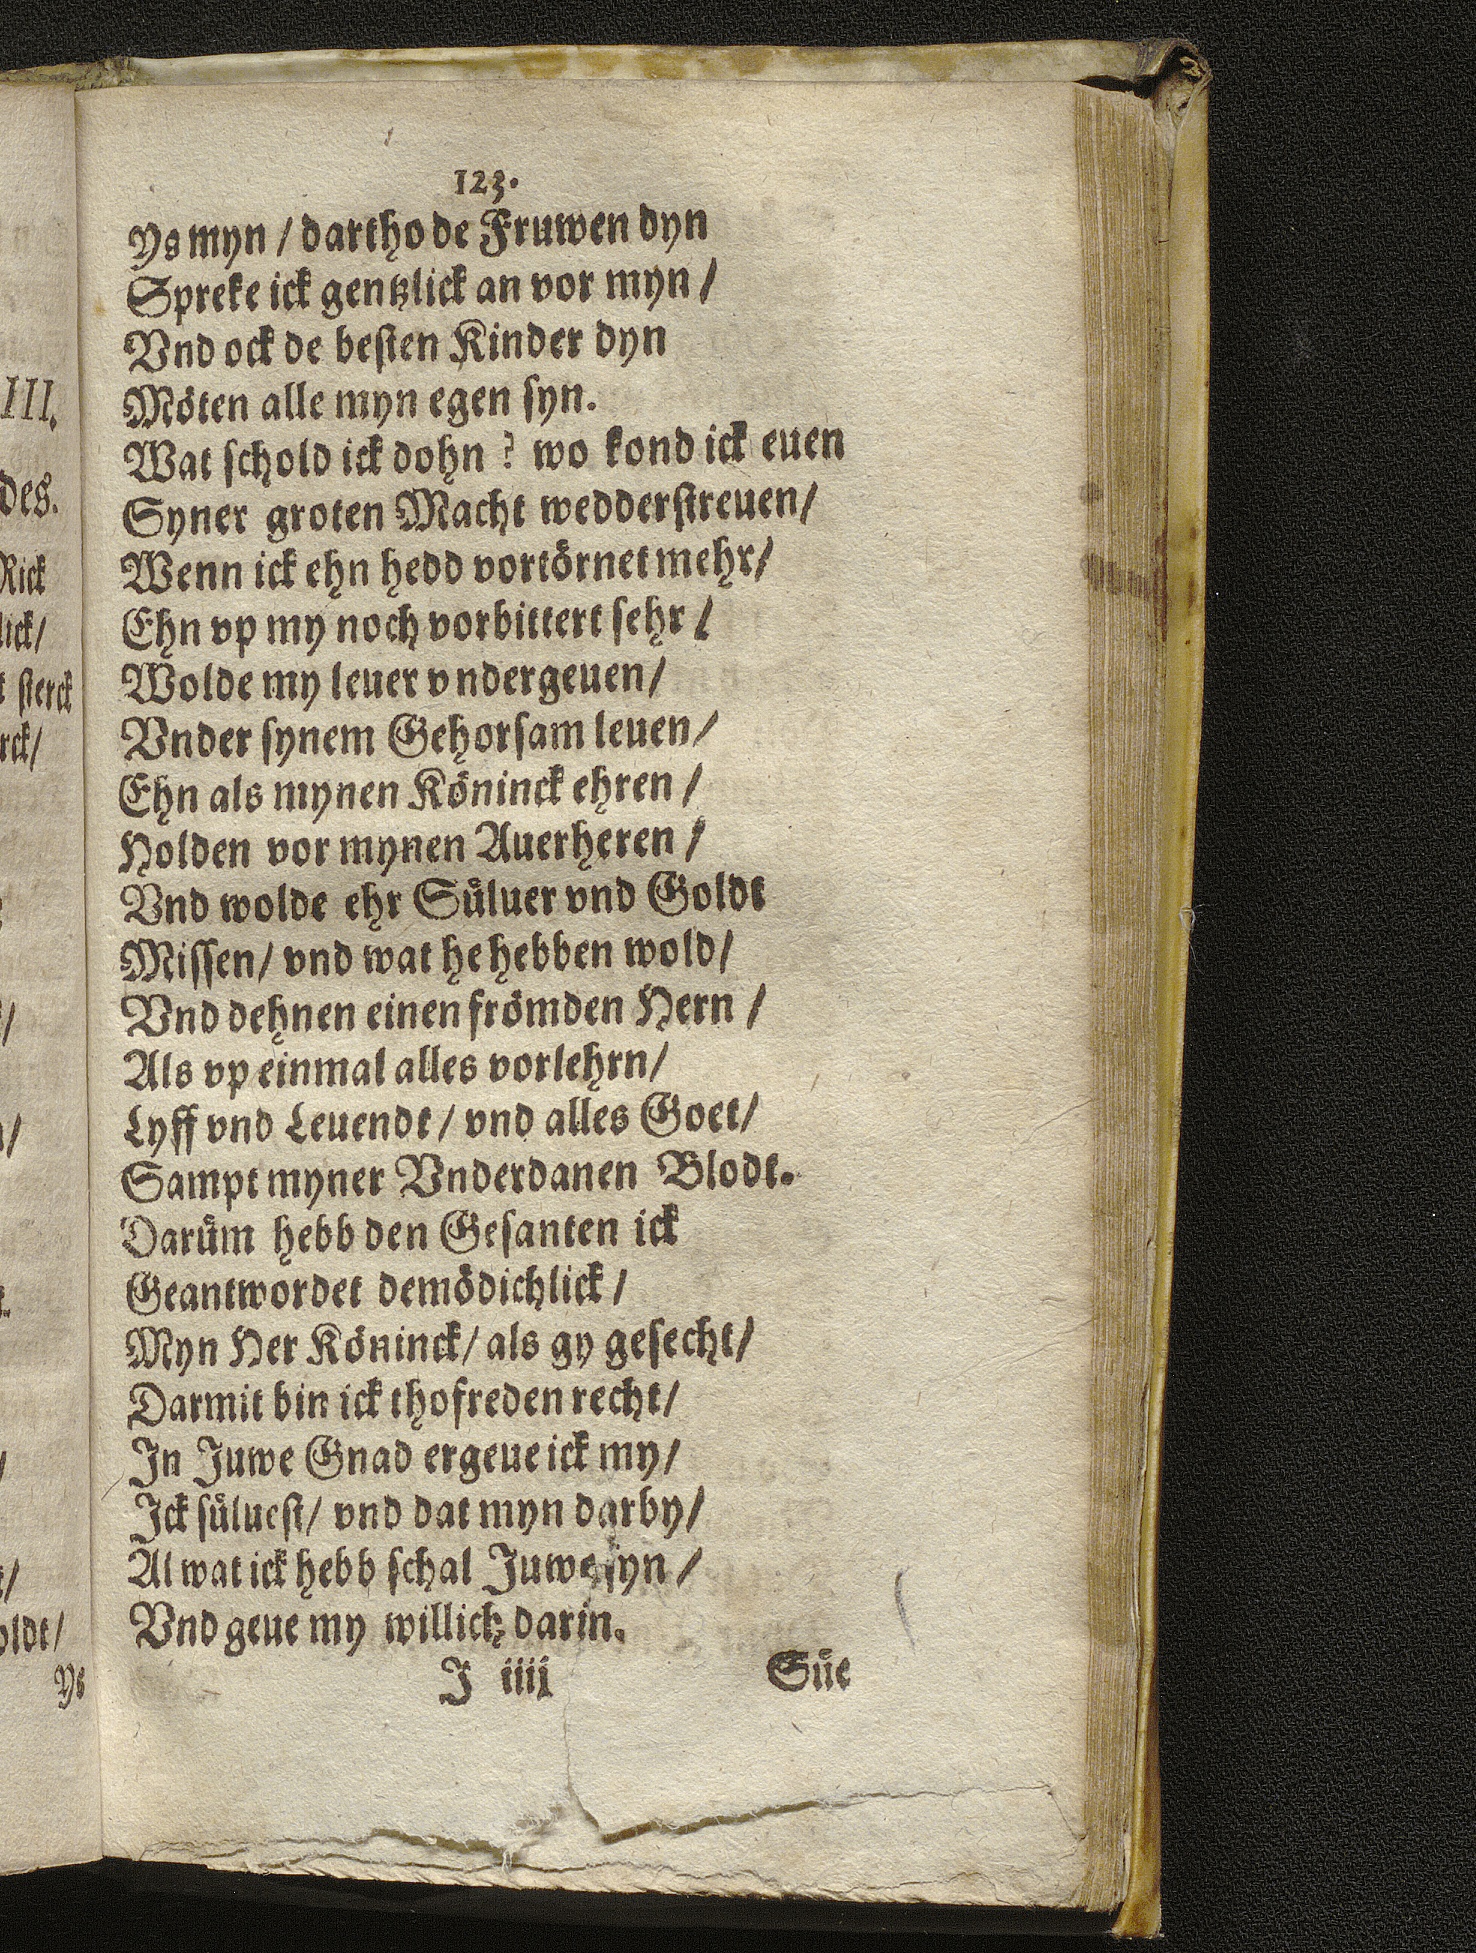 123.
Ys myn / dartho de Fruwen dyn
Spreke ick gentzlick an vor myn /
Vnd ock de besten Kinder dyn
Möten alle myn egen syn.
Wat schold ick dohn ? wo kond ick euen
Syner groten Macht wedderstreuen /
Wenn ick ehn hedd vortörnet mehr /
Ehn vp my noch vorbittert sehr /
Wolde my leuer vndergeuen /
Vnder synem Gehorsam leuen /
Ehn als mynen Köninck ehren /
Holden vor mynen Auerheren /
Vnd wolde ehr Süluer vnd Goldt
Missen / vnd wat he hebben wold /
Vnd dehnen einen frömden Hern /
Als vp einmal alles vorlehrn /
Lyff vnd Leuendt / vnd alles Goet /
Sampt myner Vnderdanen Blodt.
Darüm hebb den Gesanten ick
Geantwordet demödichlick /
Myn Her Köninck / als gy gesecht /
Darmit bin ick thofreden recht /
In Juwe Gnad ergeue ick my /
Ick süluest / vnd dat myn darby /
Al wat ick hebb schal Juwe syn /
Vnd geue my willich darin.
I iiij Süe
III.
des.
Rick
lick /
t sterck
rck /
oldt /
Ys